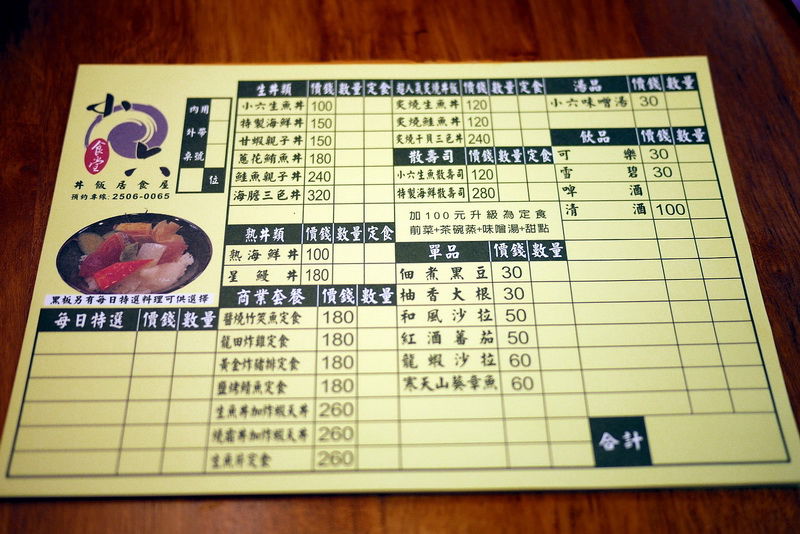 小六
食堂
丼飯居食屋
預約專線:2506-0065
內用
外帶
桌號
位
黑板另有每日特選料理可供選擇
每日特選 價錢 數量
生丼類 價錢 數量 定食
小六生魚丼 100
特製海鮮丼 150
甘蝦親子丼 150
蔥花鮪魚丼 180
鮭魚親子丼 240
海膽三色丼 320
熱丼類 價錢 數量 定食
熱海鮮丼 100
星鰻丼 180
商業套餐 價錢 數量
醬燒竹筴魚定食 180
龍田炸雞定食 180
黃金炸豬排定食 180
鹽烤鯖魚定食 180
生魚丼加炸蝦天丼 260
燒霜丼加炸蝦天丼 260
生魚片定食 260
超人氣炙燒丼飯 價錢 數量 定食
炙燒生魚丼 120
炙燒鮭魚丼 120
炙燒干貝三色丼 240
散壽司 價錢 數量 定食
小六生魚散壽司 120
特製海鮮散壽司 280
加100元升級為定食
前菜+茶碗蒸+味噌湯+甜點
單品 價錢 數量
佃煮黑豆 30
柚香大根 30
和風沙拉 50
紅酒蕃茄 50
龍蝦沙拉 60
寒天山葵章魚 60
湯品 價錢 數量
小六味噌湯 30
飲品 價錢 數量
可樂 30
雪碧 30
啤酒
清酒 100
合計